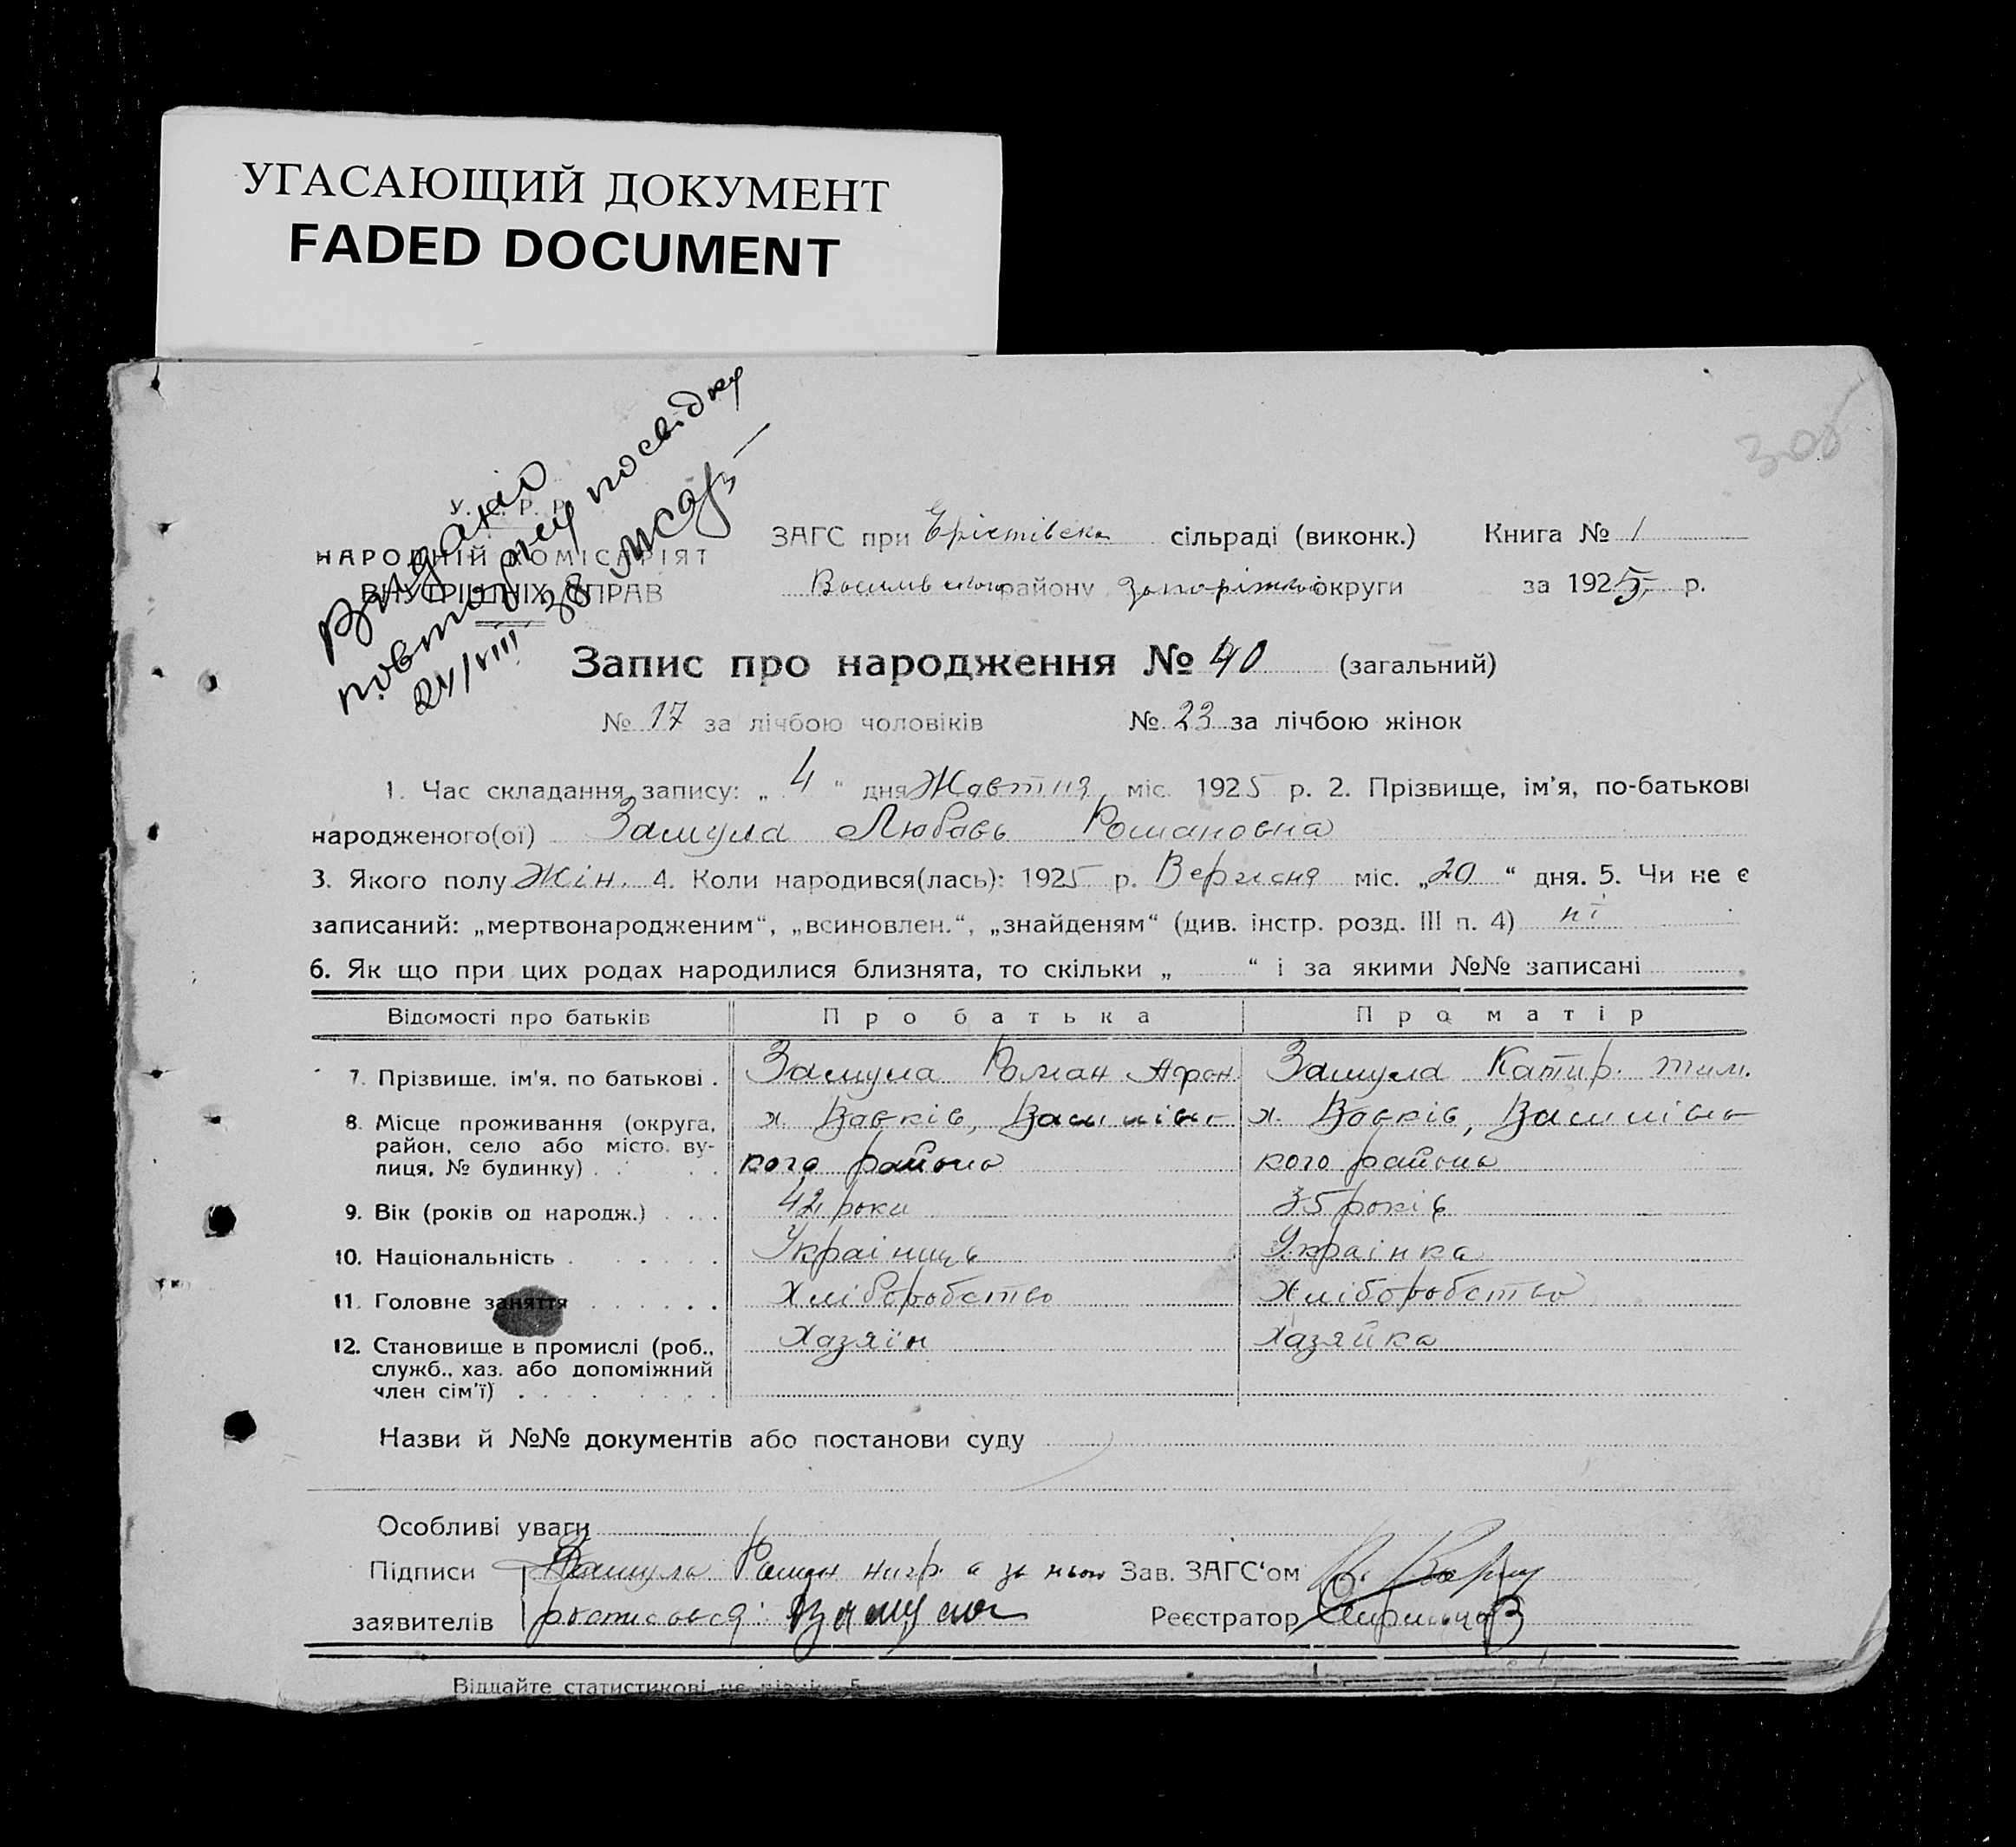 УГАСАЮЩИЙ ДОКУМЕНТ
FADED DOCUMENT
300
Видано
повторну посвідку
24/VIII 38
У. С. Р. Р.
НАРОДНІЙ КОМІСАРІЯТ
ВНУТРІШНІХ СПРАВ
ЗАГС при Ерістівська сільраді (виконк.) Книга № 1
району Запоріжської округи за 1925 р.
Запис про народження № 40 (загальний)
№ 17 за лічбою чоловіків № 23 за лічбою жінок
1. Час складання запису: „ 4 “ дня Жовтня міс. 1925 р. 2. Прізвище, ім'я, по-батькові
народженого(ої) Замула Любовь Романовна
3. Якого полу Жін. 4. Коли народився(лась): 1925 р. Вересня міс. „20“ дня. 5. Чи не є
записаний: „мертвонародженим“, „всиновлен.“, „знайденям“ (див. інстр. розд. III п. 4) ні
6. Як що при цих родах народилися близнята, то скільки „ “ і за якими №№ записані
Відомості про батьків Про батька Про матір
7. Прізвище, ім'я, по батькові . Замула Роман Афон. Замула Катир. Тим.
8. Місце проживання (округа, район, село або місто, вулиця, № будинку) . . .
х. Вовків, Василівського района х. Вовків, Василівського района
9. Вік (років од народж.) . . . 42 роки 35 років
10. Національність . . . . . . Українець Українка
11. Головне заняття . . . . . . Хліборобство Хліборобство
12. Становище в промислі (роб., Хазяїн Хазяйка
служб., хаз. або допоміжний
член сім'ї) . . . . . .
Назви й №№ документів або постанови суду
Особливі уваги
Підписи Замула Роман негр. а за нього Зав. ЗАГС'ом
заявителів Замула Реєстратор
Віддайте статистикові